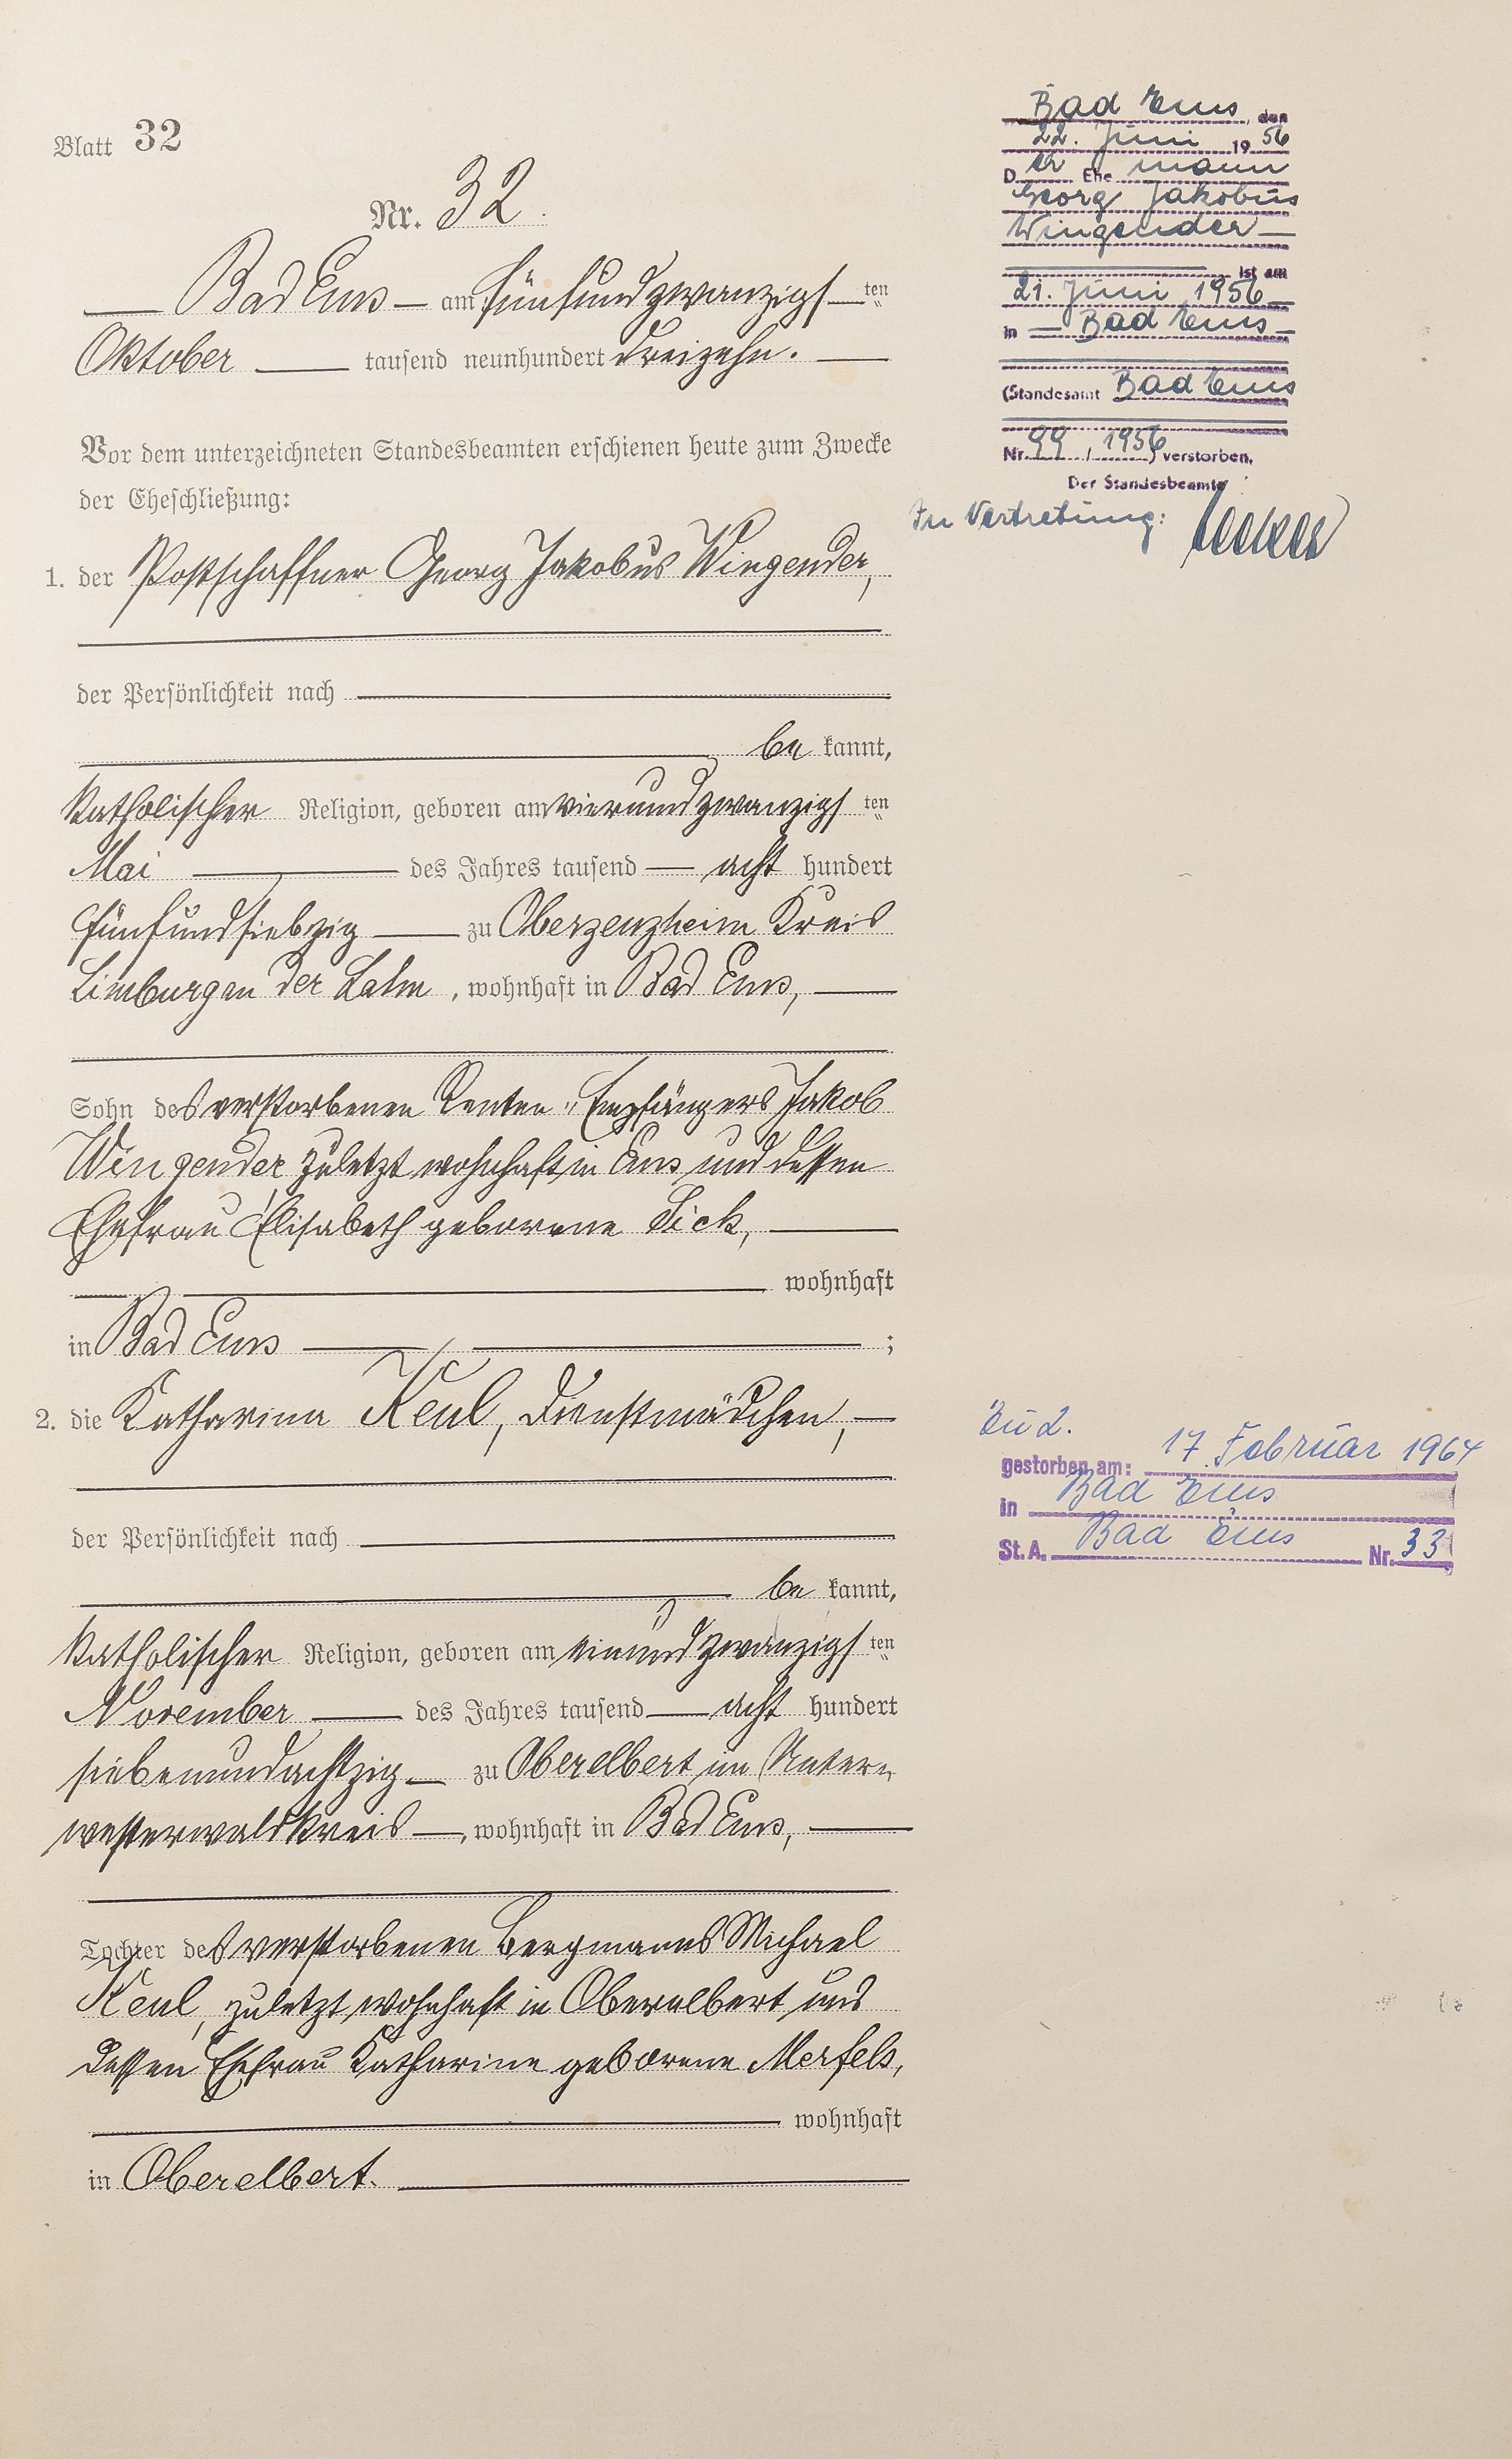 Blatt 32
Nr. 32.
Bad Ems am fünfundzwanzigsten
Oktober tausend neunhundert dreizehn.
Vor dem unterzeichneten Standesbeamten erschienen heute zum Zwecke
der Eheschließung:
1. der Postschaffner Georg Jakobus Wingender,
der Persönlichkeit nach
be kannt,
katholischer Religion, geboren am vierundzwanzigsten
Mai des Jahres tausend acht hundert
fünfundsiebzig zu Oberzeuzheim Kreis
Limburg an der Lahn, wohnhaft in Bad Ems,
Sohn des verstorbenen Renten-Empfängers Jakob
Wingender zuletzt wohnhaft in Ems und dessen
Ehefrau Elisabeth geborene Sick,
wohnhaft
in Bad Ems ;
2. die Katharina Keul, Dienstmädchen,
der Persönlichkeit nach
be kannt,
katholischer Religion, geboren am einundzwanzigsten
November des Jahres tausend acht hundert
siebenundachtzig zu Oberelbert im Unter-
westerwaldkreis, wohnhaft in Bad Ems,
Tochter des verstorbenen Bergmanns Michael
Keul, zuletzt wohnhaft in Oberelbert und
dessen Ehefrau Katharine geborene Merfels,
wohnhaft
in Oberelbert.
Bad Ems, den
22. Juni 1956
Der Ehemann
Georg Jakobus
Wingender
ist am
21. Juni 1956
in Bad Ems
(Standesamt Bad Ems
Nr. 99 / 1956) verstorben.
Der Standesbeamte
In Vertretung:
Zu 2.
gestorben am: 17. Februar 1964
in Bad Ems
St. A. Bad Ems Nr. 33